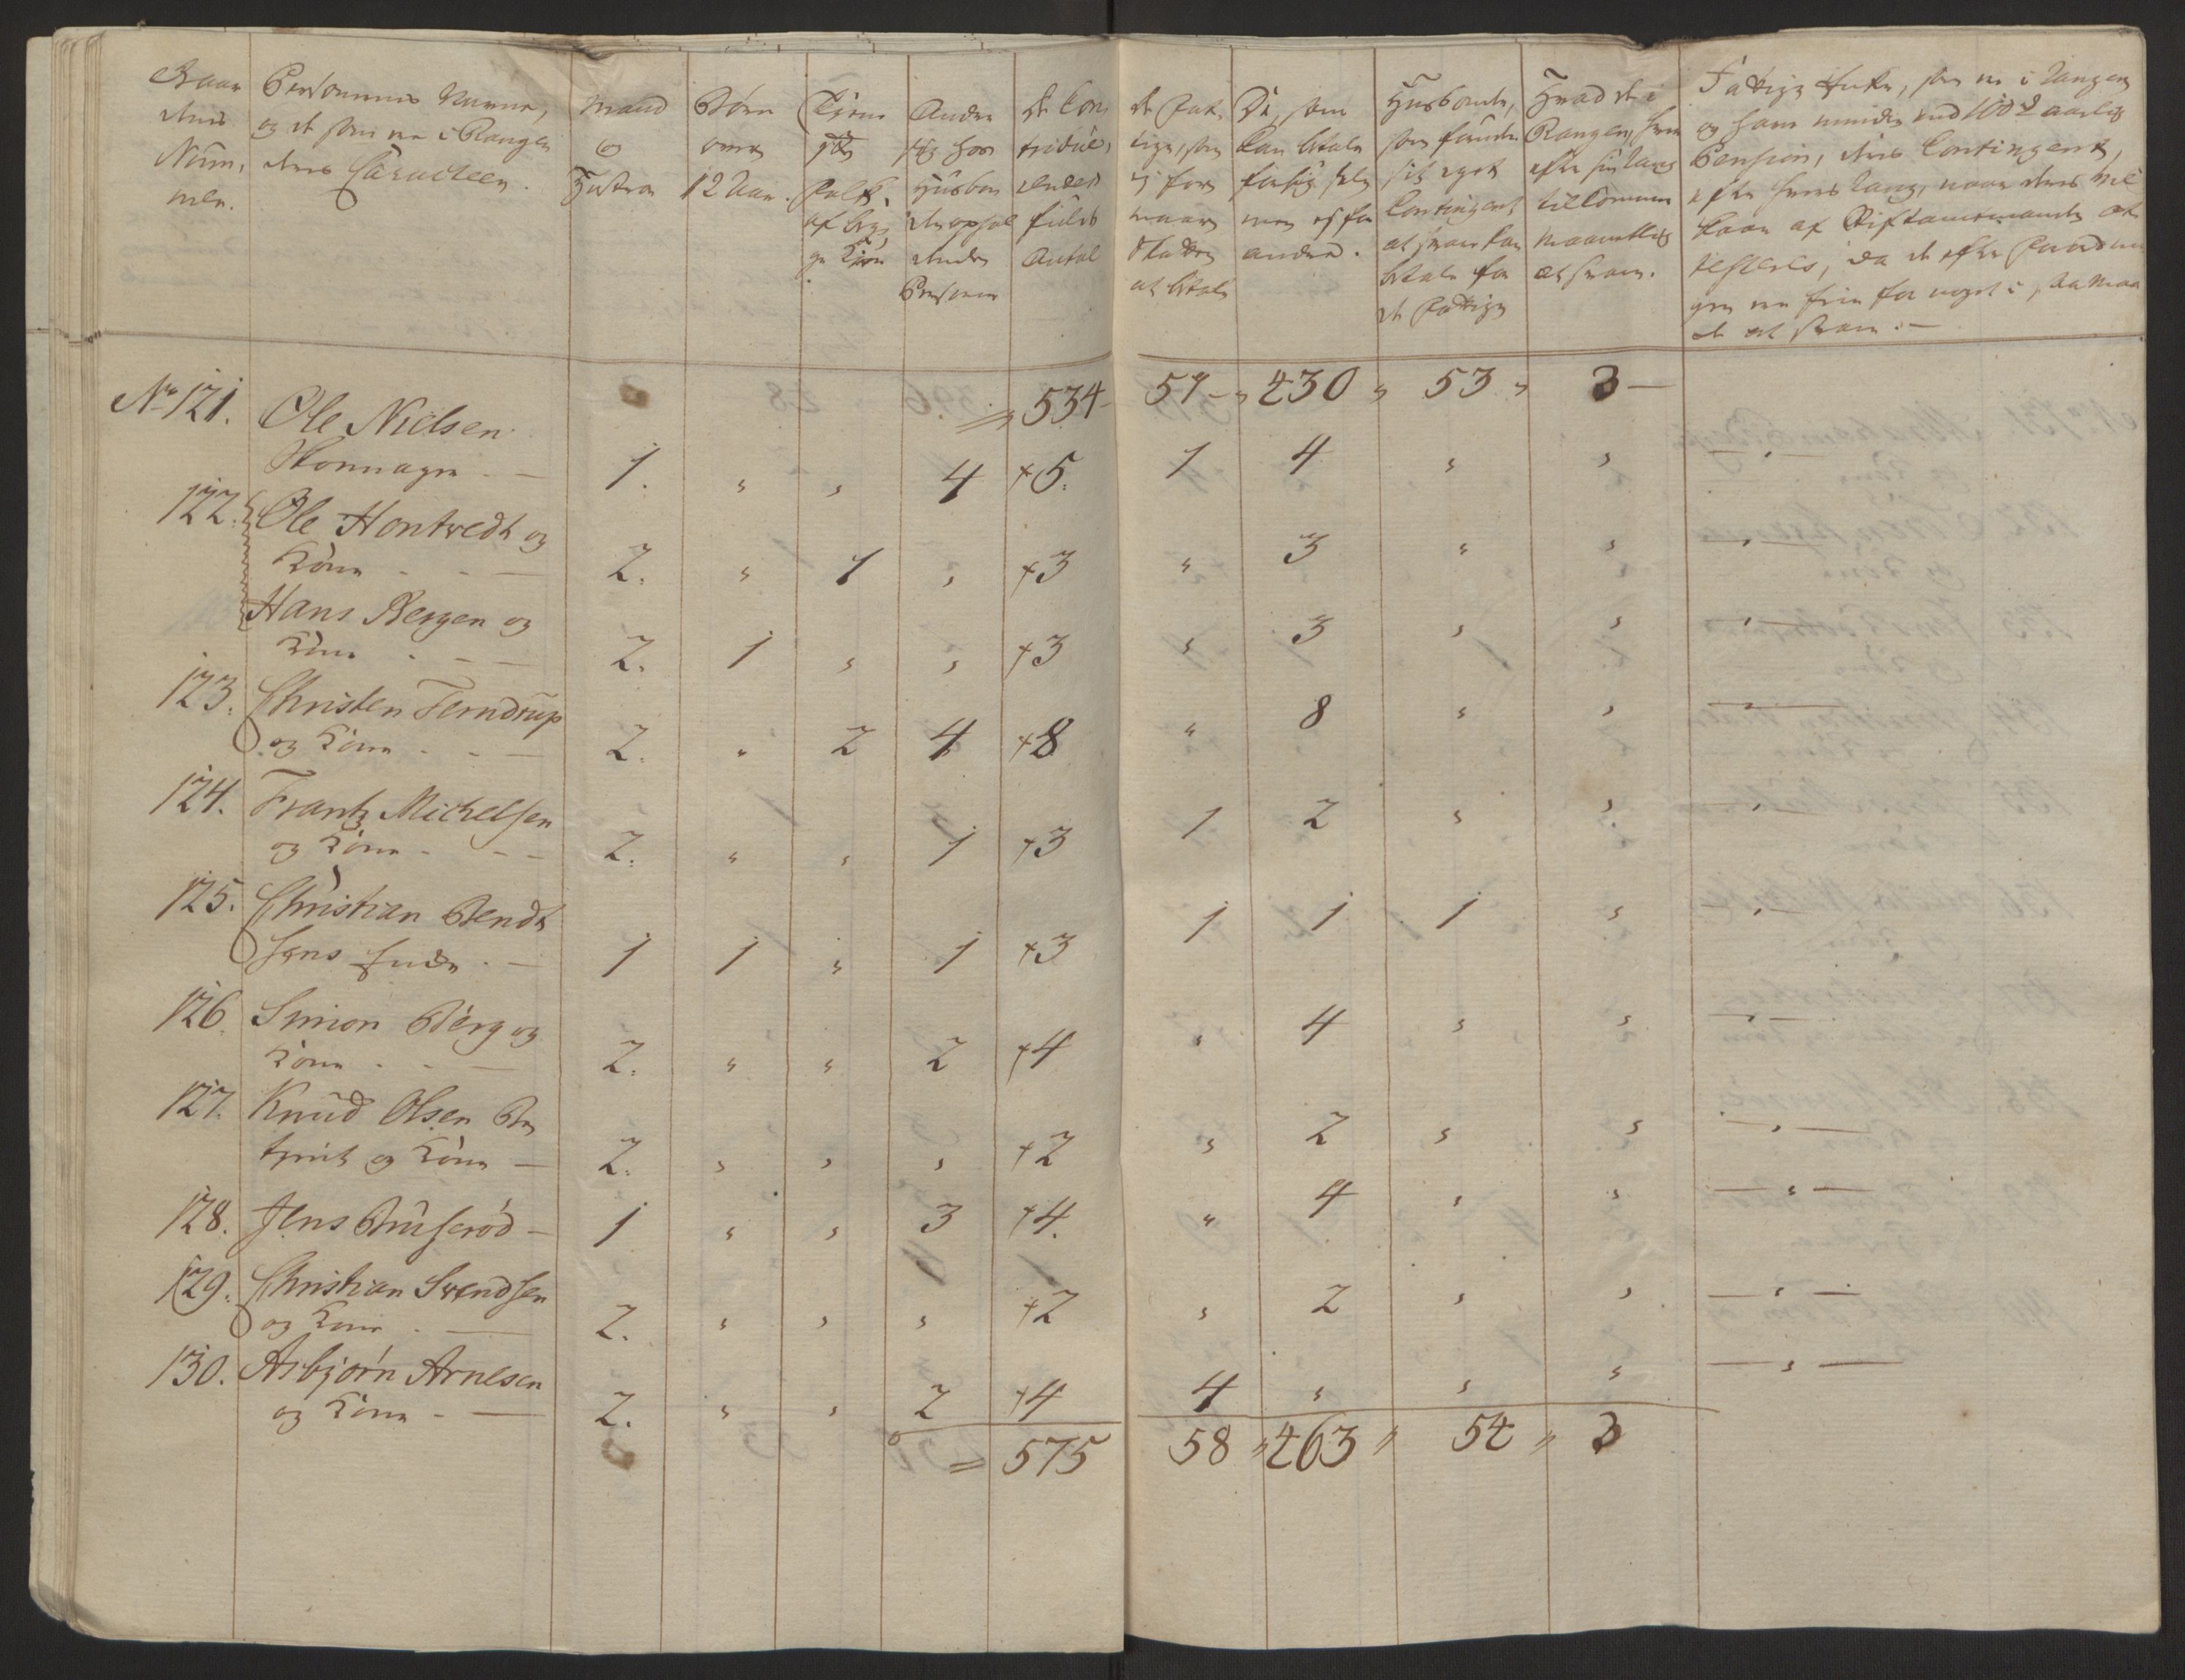 deres Num, mer.
Personernes Navne, og de som ere i Rangen deres Caracteer.
Mand og Hustroe
Børn over 12 Aar.
Tiene ste Folk, af begge Kiøn
Andre sig hos Husbon den ophol dende Personer
De Con tribue, rendes fulde Antal
De Fat, tige, som ej for maaer Skatten at betale
De, som kan betale for sig selv men ej for andre.
Husbonde, som foruden sit eget Contingent at svare kan betale for de Fattige
Hvad de i Rangen, hver efter sin Rang tilkommer Maanetlig at svare.
Fattige Enker, som ere i Rangen og have mindre end 100 rd aarlig Pension, deres Contingent, efter hvers Rang, naar deres Vil kaar af Stiftamtmanden at testeres, da de efter Forordnin gen ere frie for noget i, saa maa de at svare. —
= 534 — 57 — " 430 " 53 " 3 —
No 121. Ole Nielsen
Honnager — 1. " " 4 +5. 1 4 " " — " —
122. Ole Hontvedt og
Kone - - — 2. " 1 " +3 " 3 " " — " —
Hans Bergen og
Kone - - — 2. 1 " " +3 " 3 " " — " —
123. Christen Terndrup
og Kone - - — 2. " 2 4 +8 " 8 " " — " —
124. Frantz Michelsen
og Kone - - - 2. " " 1 +3 1 2 " " — " —
125. Christian Bendt
sens Enke - — 1 1 " 1 +3 1 1 1 " — " —
126. Simon Berg og
Kone - - — 2. " " 2 +4 " 4 " " — " —
127. Knud Olsen
og Kone — 2. " " " +2 " 2 " " — " —
128. Jens Buserød — 1 " " 3 +4. " 4 " " — " —
129. Christian Svendsen
og Kone - — 2. " " " +2 " 2 " " — " —
130. Asbjørn Arnesen
og Kone - — 2. " " 2 +4 4 " " " — " —
= 575 58 " 463 " 54 " 3